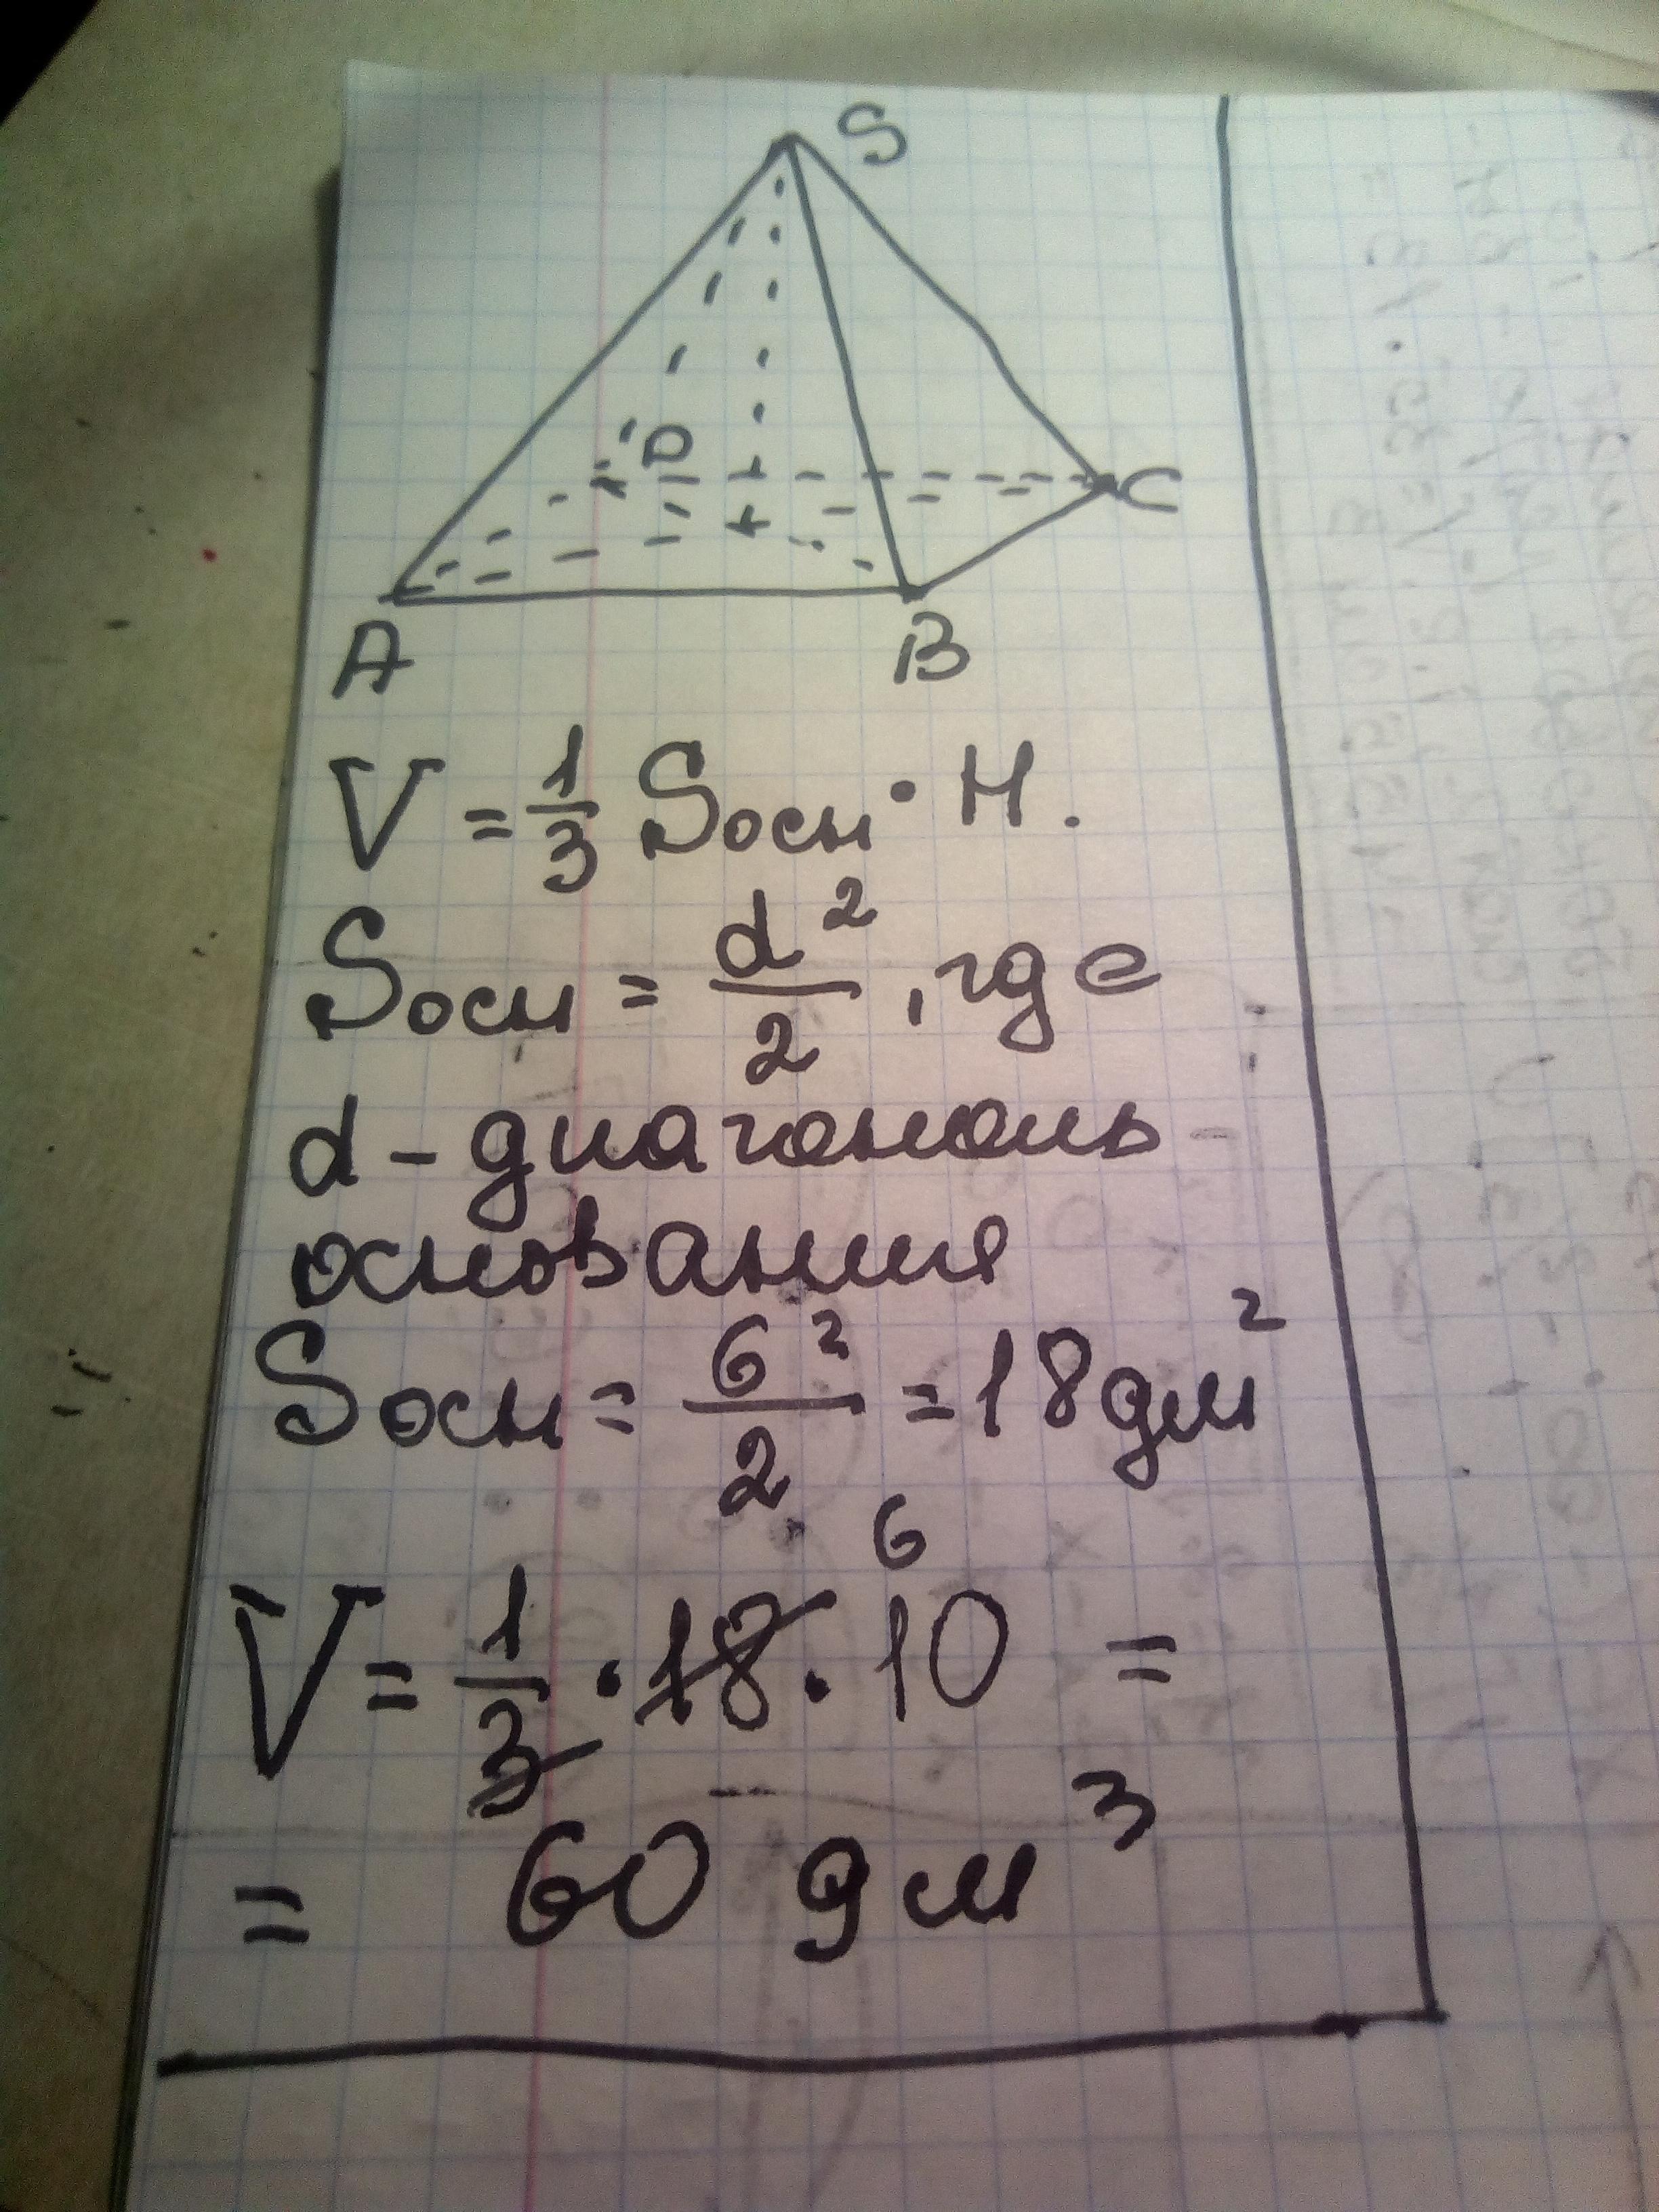 S
D
C
A
B
V = 1/3 Sосн · H.
Sосн = d²/2, где
d - диагональ
основания
Sосн = 6²/2 = 18 дм²
6
V = 1/3 · 18 · 10 =
= 60 дм³